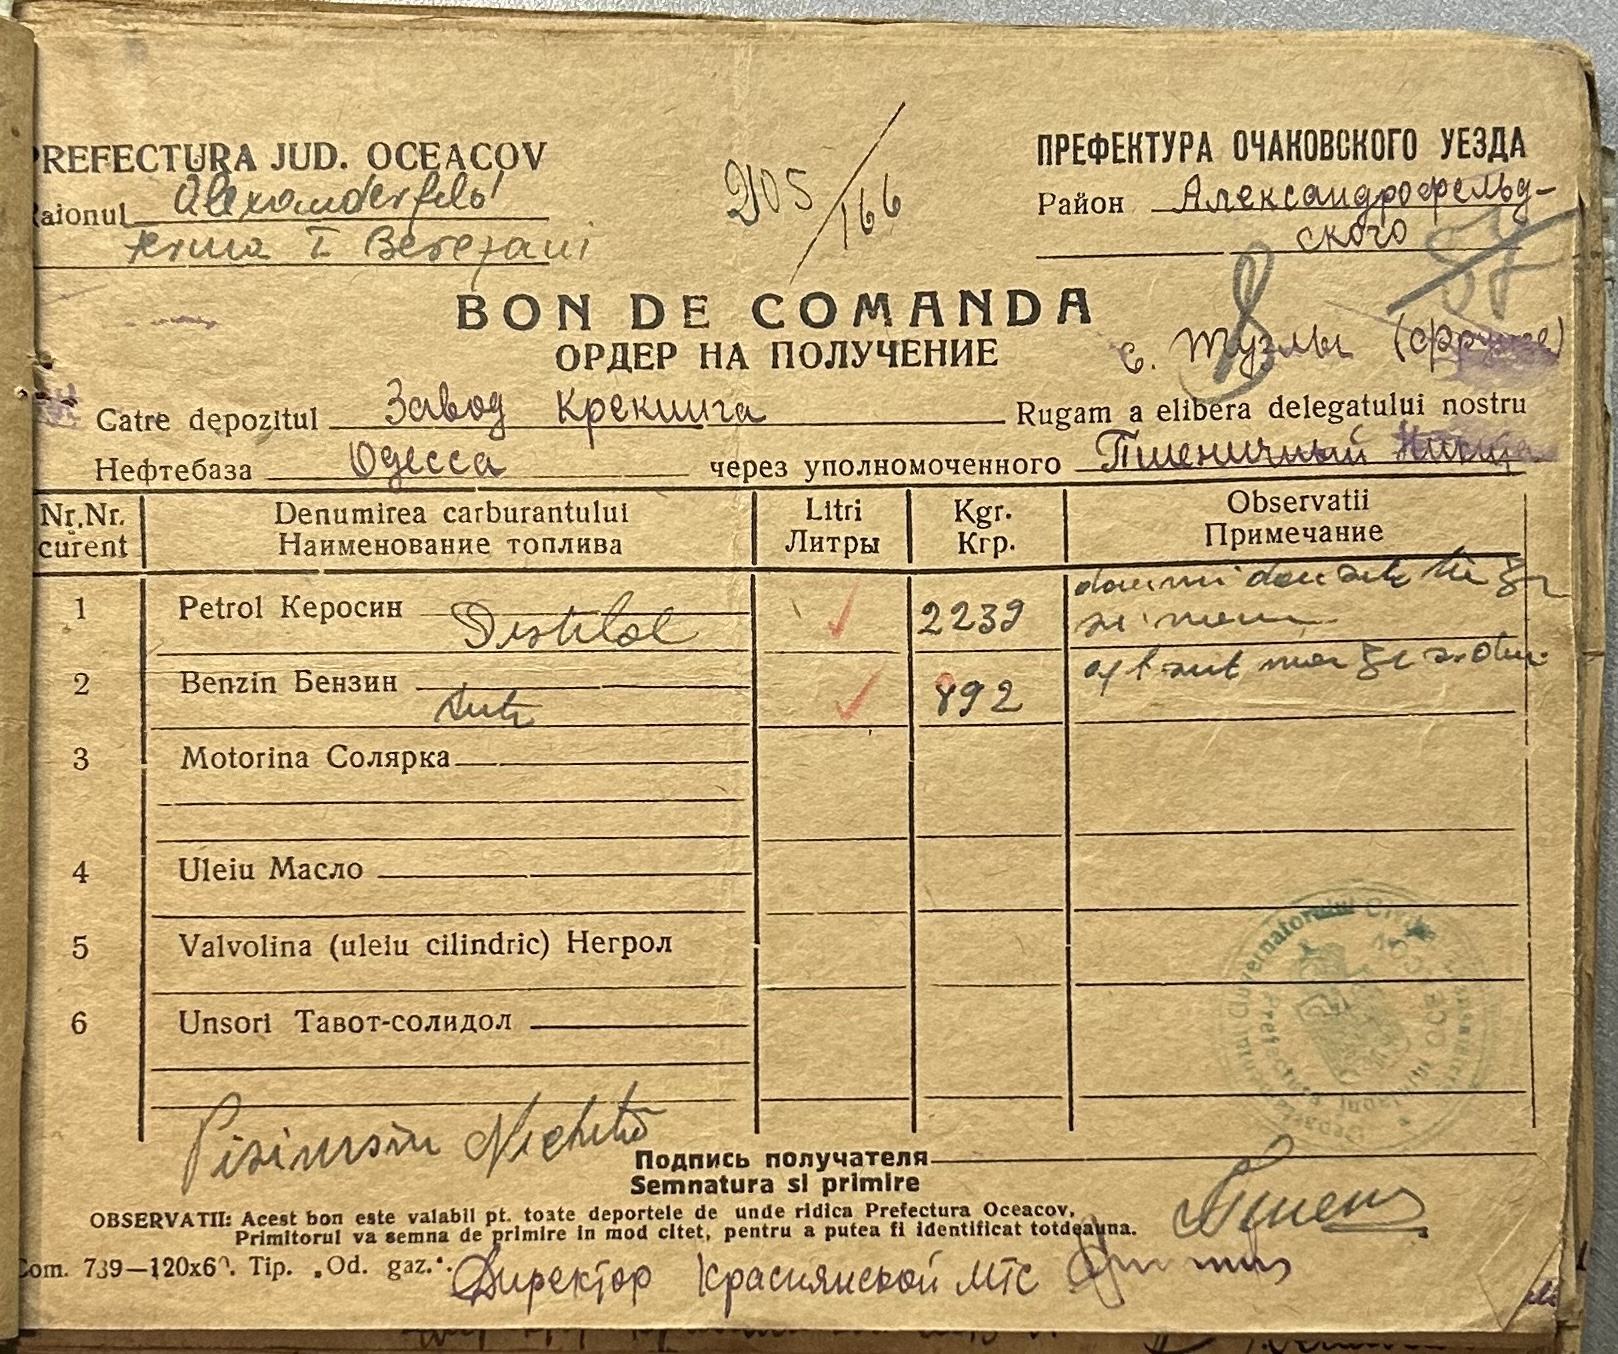 PREFECTURA JUD. OCEACOV
ПРЕФЕКТУРА ОЧАКОВСКОГО УЕЗДА
Raionul Alexanderfeld
Район Александрофельд-
ского
Ferma I Berezani
2105/166
BON DE COMANDA
ОРДЕР НА ПОЛУЧЕНИЕ
с. Тузлы
Catre depozitul Завод Крекинга Rugam a elibera delegatului nostru
Нефтебаза Одесса через уполномоченного Пшеничный Никита
Nr. Nr. curent
Denumirea carburantului
Наименование топлива
Litri
Литры
Kgr.
Кгр.
Observatii
Примечание
1 Petrol Керосин Distilat 2239
2 Benzin Бензин 892
3 Motorina Солярка
4 Uleiu Масло
5 Valvolina (uleiu cilindric) Негрол
6 Unsori Тавот-солидол
Подпись получателя
Semnatura si primire
OBSERVATII: Acest bon este valabil pt. toate deportele de unde ridica Prefectura Oceacov.
Primitorul va semna de primire in mod citet, pentru a putea fi identificat totdeauna.
Com. 739—120x60. Tip. „Od. gaz.“.
Директор Краснянской МТС